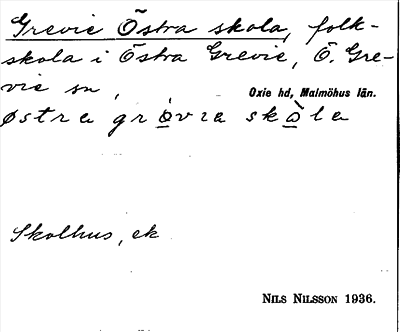 Grevie Östra skola, folk-
skola i Östra Grevie, Ö. Gre-
vie sn, Oxie hd, Malmöhus län.
østra grovia skola
Skolhus, ek
NILS NILSSON 1936.